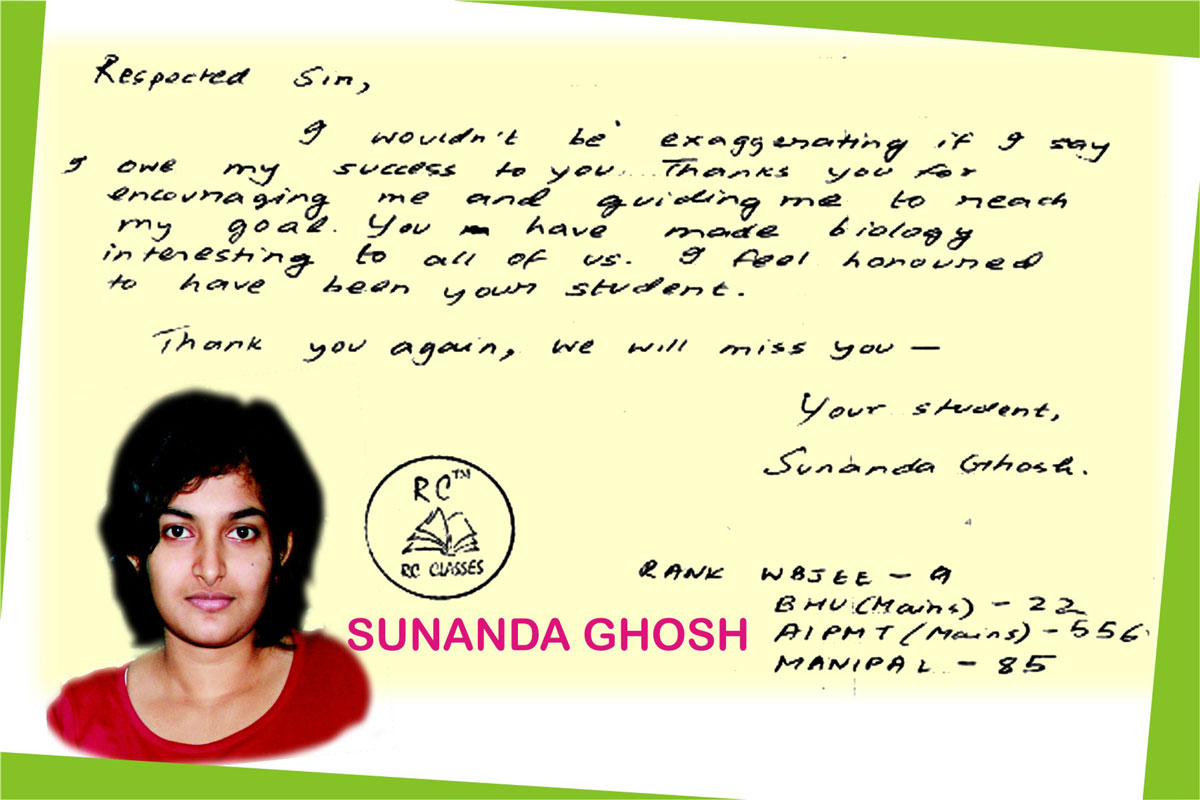 Respected Sir,
I wouldn't be exaggerating if I say
I owe my success to you. Thanks you for
encouraging me and guiding me to reach
my goal. You have made biology
interesting to all of us. I feel honoured
to have been your student.
Thank you again, we will miss you —
Your student,
Sunanda Ghosh.
RC™
RC CLASSES
SUNANDA GHOSH
RANK WBJEE - 9
BHU (Mains) - 22
AIPMT (Mains) - 556
MANIPAL - 85